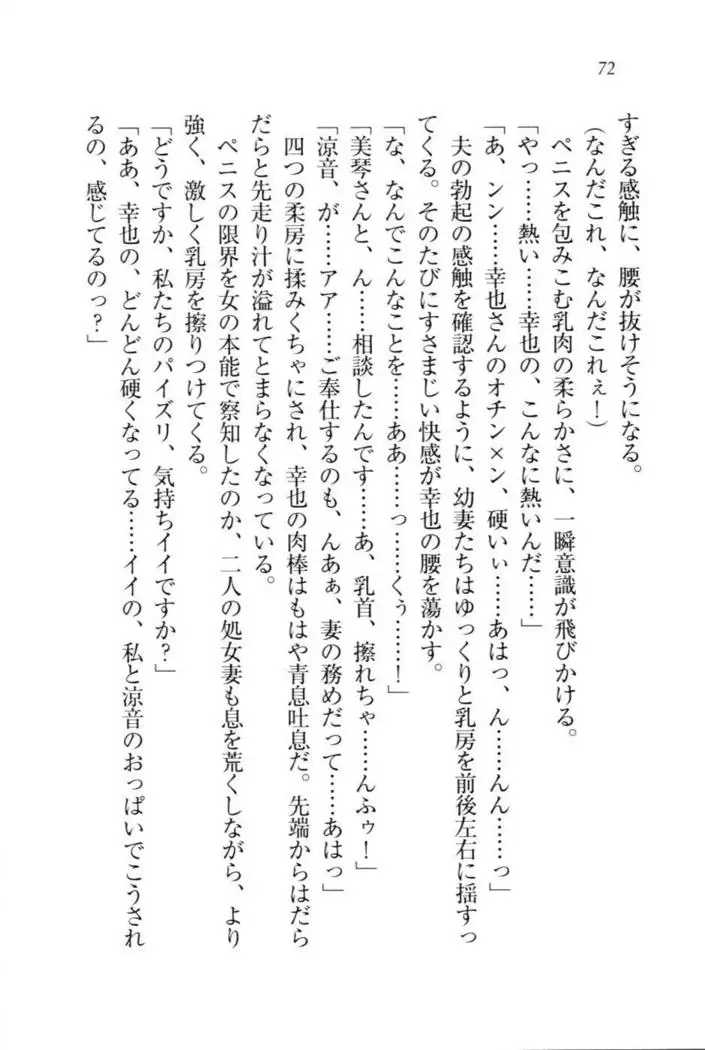 72
すぎる感触に、腰が抜けそうになる。
（なんだこれ、なんだこれぇ！）
ペニスを包みこむ乳肉の柔らかさに、一瞬意識が飛びかける。
「やっ……熱い……幸也の、こんなに熱いんだ……」
「あ、ンン……幸也さんのオチン×ン、硬いぃ……あはっ、ん……んん……っ」
夫の勃起の感触を確認するように、幼妻たちはゆっくりと乳房を前後左右に揺すっ
てくる。そのたびにすさまじい快感が幸也の腰を蕩かす。
「な、なんでこんなことを……ああ……っ……くぅ……！」
「美琴さんと、ん……相談したんです……あ、乳首、擦れちゃ……んふゥ！」
「涼音、が……アア……ご奉仕するのも、んあぁ、妻の務めだって……あはっ」
四つの柔房に揉みくちゃにされ、幸也の肉棒はもはや青息吐息だ。先端からはだら
だらと先走り汁が溢れてとまらなくなっている。
ペニスの限界を女の本能で察知したのか、二人の処女妻も息を荒くしながら、より
強く、激しく乳房を擦りつけてくる。
「どうですか、私たちのパイズリ、気持ちイイですか？」
「ああ、幸也の、どんどん硬くなってる……イイの、私と涼音のおっぱいでこうされ
るの、感じてるのっ？」